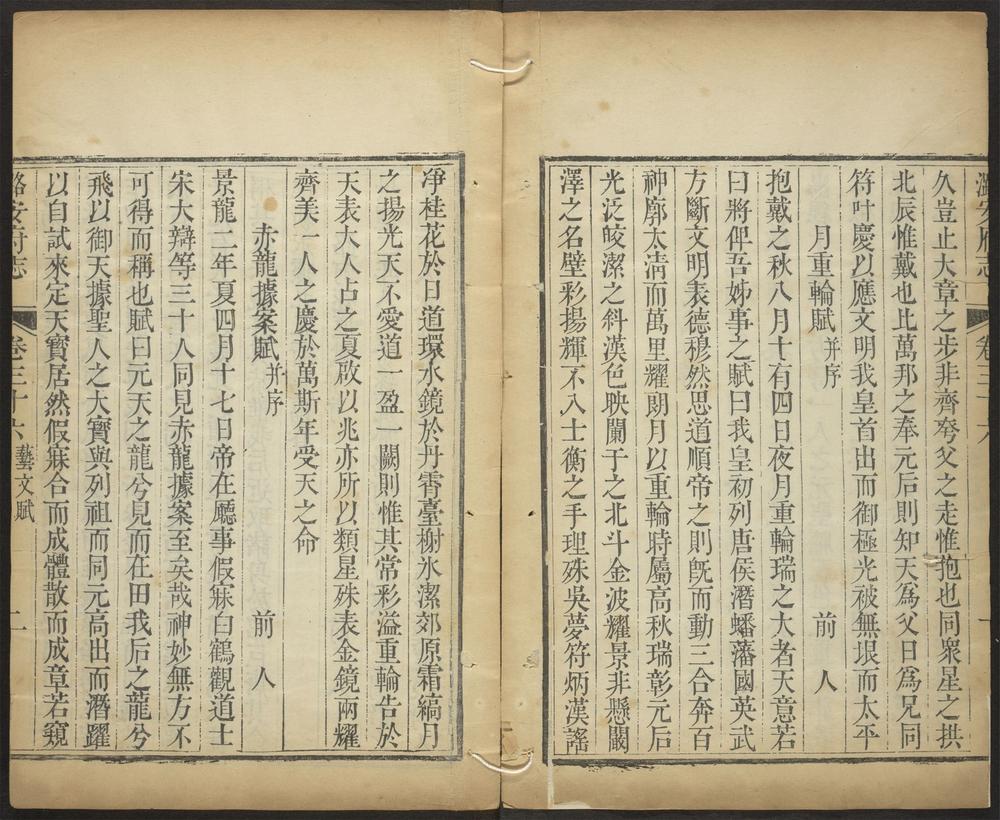 潞安府志 卷三十六
久豈止大章之步非齊夸父之走惟抱也同衆星之拱
北辰惟戴也比萬邦之奉元后則知天爲父日爲兄同
符叶慶以應文明我皇首出而御極光被無垠而太平
月重輪賦并序 前人
抱戴之秋八月十有四日夜月重輪瑞之大者天意若
曰將俾吾姊事之賦曰我皇初列唐侯潛蟠藩國英武
方斷文明表德穆然思道順帝之則旣而動三合奔百
神廓太淸而萬里耀朗月以重輪時屬高秋瑞彰元后
光泛皎潔之斜漢色映闌于之北斗金波耀景非懸闞
澤之名璧彩揚輝不入士衡之手理殊吳夢符炳漢謠
凈桂花於日道環水鏡於丹霄臺榭氷潔郊原霜縞月
之揚光天不愛道一盈一闕則惟其常彩溢重輪告於
天表大人占之夏啟以兆亦所以類星殊表金鏡兩耀
齊美一人之慶於萬斯年受天之命
赤龍據案賦并序 前人
景龍二年夏四月十七日帝在廳事假寐白鶴觀道士
宋大辯等三十人同見赤龍據案至矣哉神妙無方不
可得而稱也賦曰元天之龍兮見而在田我后之龍兮
飛以御天據聖人之大寶與列祖而同元高出而潛躍
以自試來定天寶居然假寐合而成體散而成章若窺
潞安府志 卷三十六 藝文賦 二